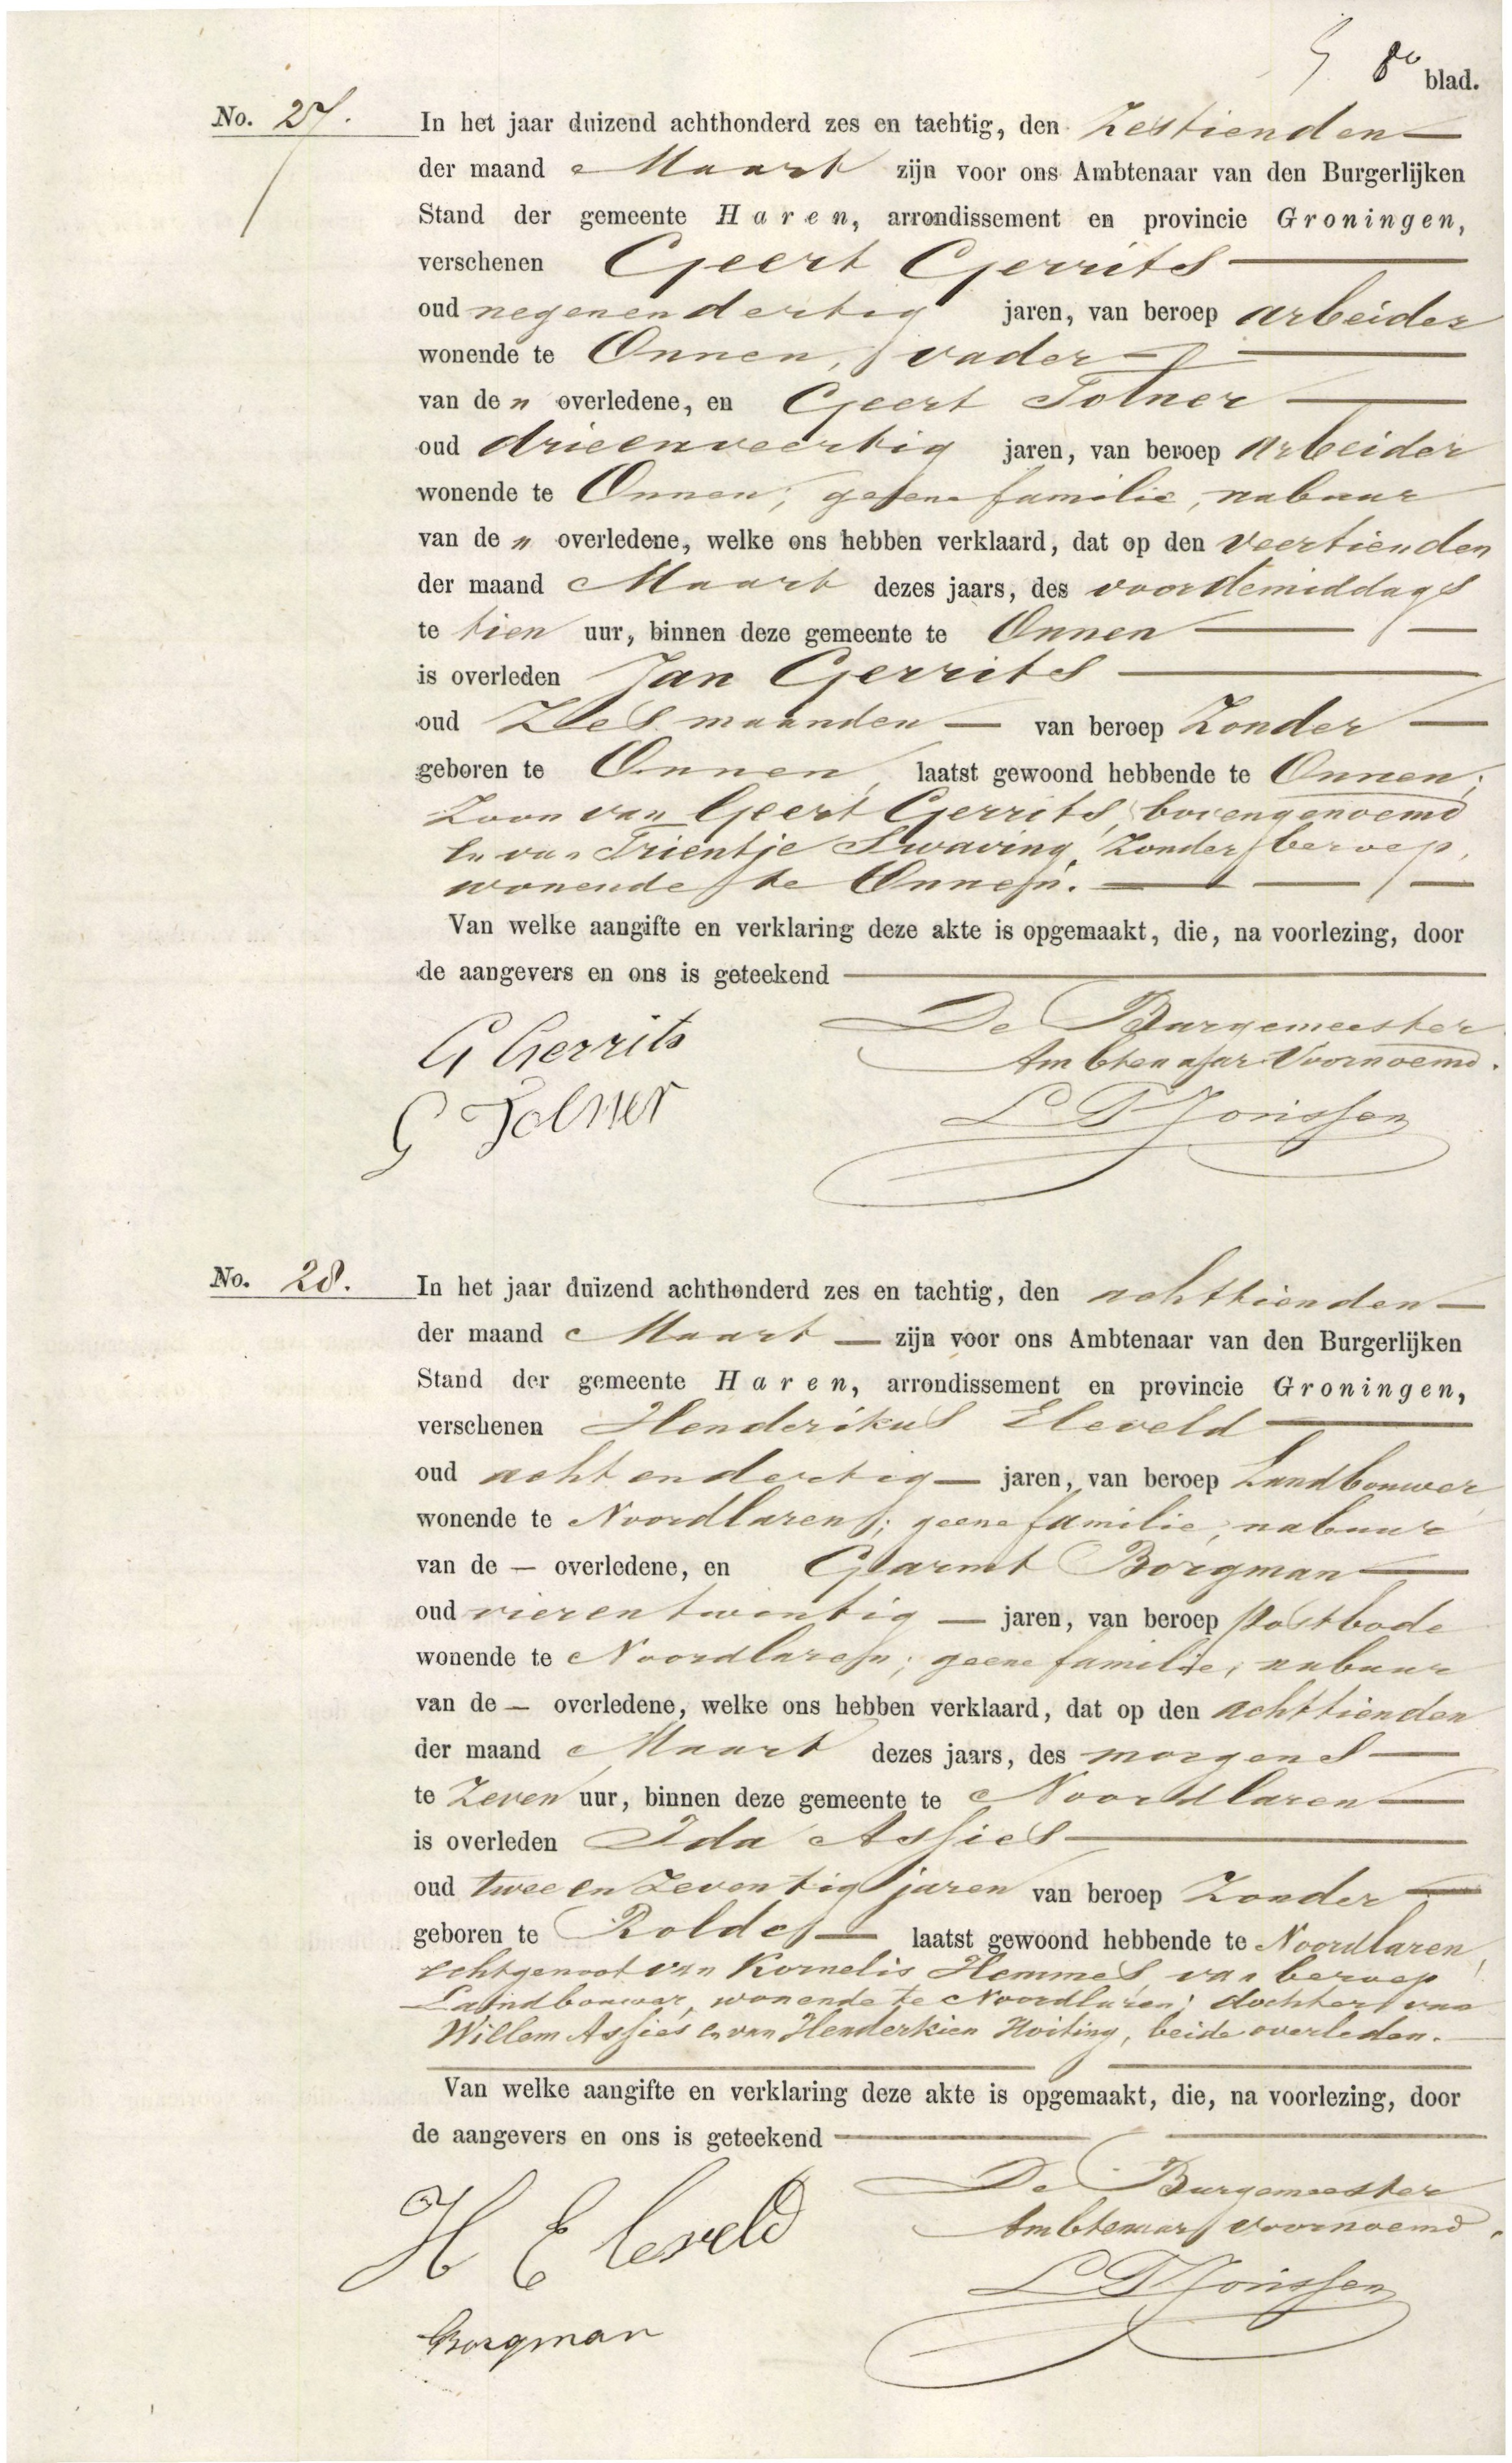 8e blad.
No. 27. In het jaar duizend achthonderd zes en tachtig, den Zestienden
der maand Maart zijn voor ons Ambtenaar van den Burgerlijken
Stand der gemeente Haren, arrondissement en provincie Groningen,
verschenen Geert Gerrits
oud negenendertig jaren, van beroep arbeider
wonende te Onnen, vader
van de n overledene, en Geert Tolner
oud drieenveertig jaren, van beroep arbeider
wonende te Onnen; geene familie, nabuur
van de n overledene, welke ons hebben verklaard, dat op den veertienden
der maand Maart dezes jaars, des voordemiddags
te tien uur, binnen deze gemeente te Onnen
is overleden Jan Gerrits
oud Zes maanden van beroep Zonder
geboren te Onnen, laatst gewoond hebbende te Onnen;
Zoon van Geert Gerrits, bovengenoemd
en van Trientje Swaving, Zonder beroep,
wonende te Onnen.
Van welke aangifte en verklaring deze akte is opgemaakt, die, na voorlezing, door
de aangevers en ons is geteekend
De Burgemeester
G Gerrits
Ambtenaar Voornoemd.
G Tolner
Jorissen
No. 28. In het jaar duizend achthonderd zes en tachtig, den achttienden
der maand Maart zijn voor ons Ambtenaar van den Burgerlijken
Stand der gemeente Haren, arrondissement en provincie Groningen,
verschenen Henderikus Eleveld
oud achtendertig jaren, van beroep Landbouwer
wonende te Noordlaren; geene familie, nabuur
van de — overledene, en Garmt Borgman
oud vierentwintig jaren, van beroep postbode
wonende te Noordlaren; geene familie, nabuur
van de — overledene, welke ons hebben verklaard, dat op den achttienden
der maand Maart dezes jaars, des morgens
te Zeven uur, binnen deze gemeente te Noordlaren
is overleden Ida Assies
oud twee en Zeventig jaren van beroep Zonder
geboren te Rolde laatst gewoond hebbende te Noordlaren,
echtgenoot van Kornelis Hemmes, van beroep
Landbouwer, wonende te Noordlaren; dochter van
Willem Assies en van Henderkien Hoiting, beide overleden.
Van welke aangifte en verklaring deze akte is opgemaakt, die, na voorlezing, door
de aangevers en ons is geteekend
De Burgemeester
H Eleveld
Ambtenaar voornoemd.
Jorissen
Borgman